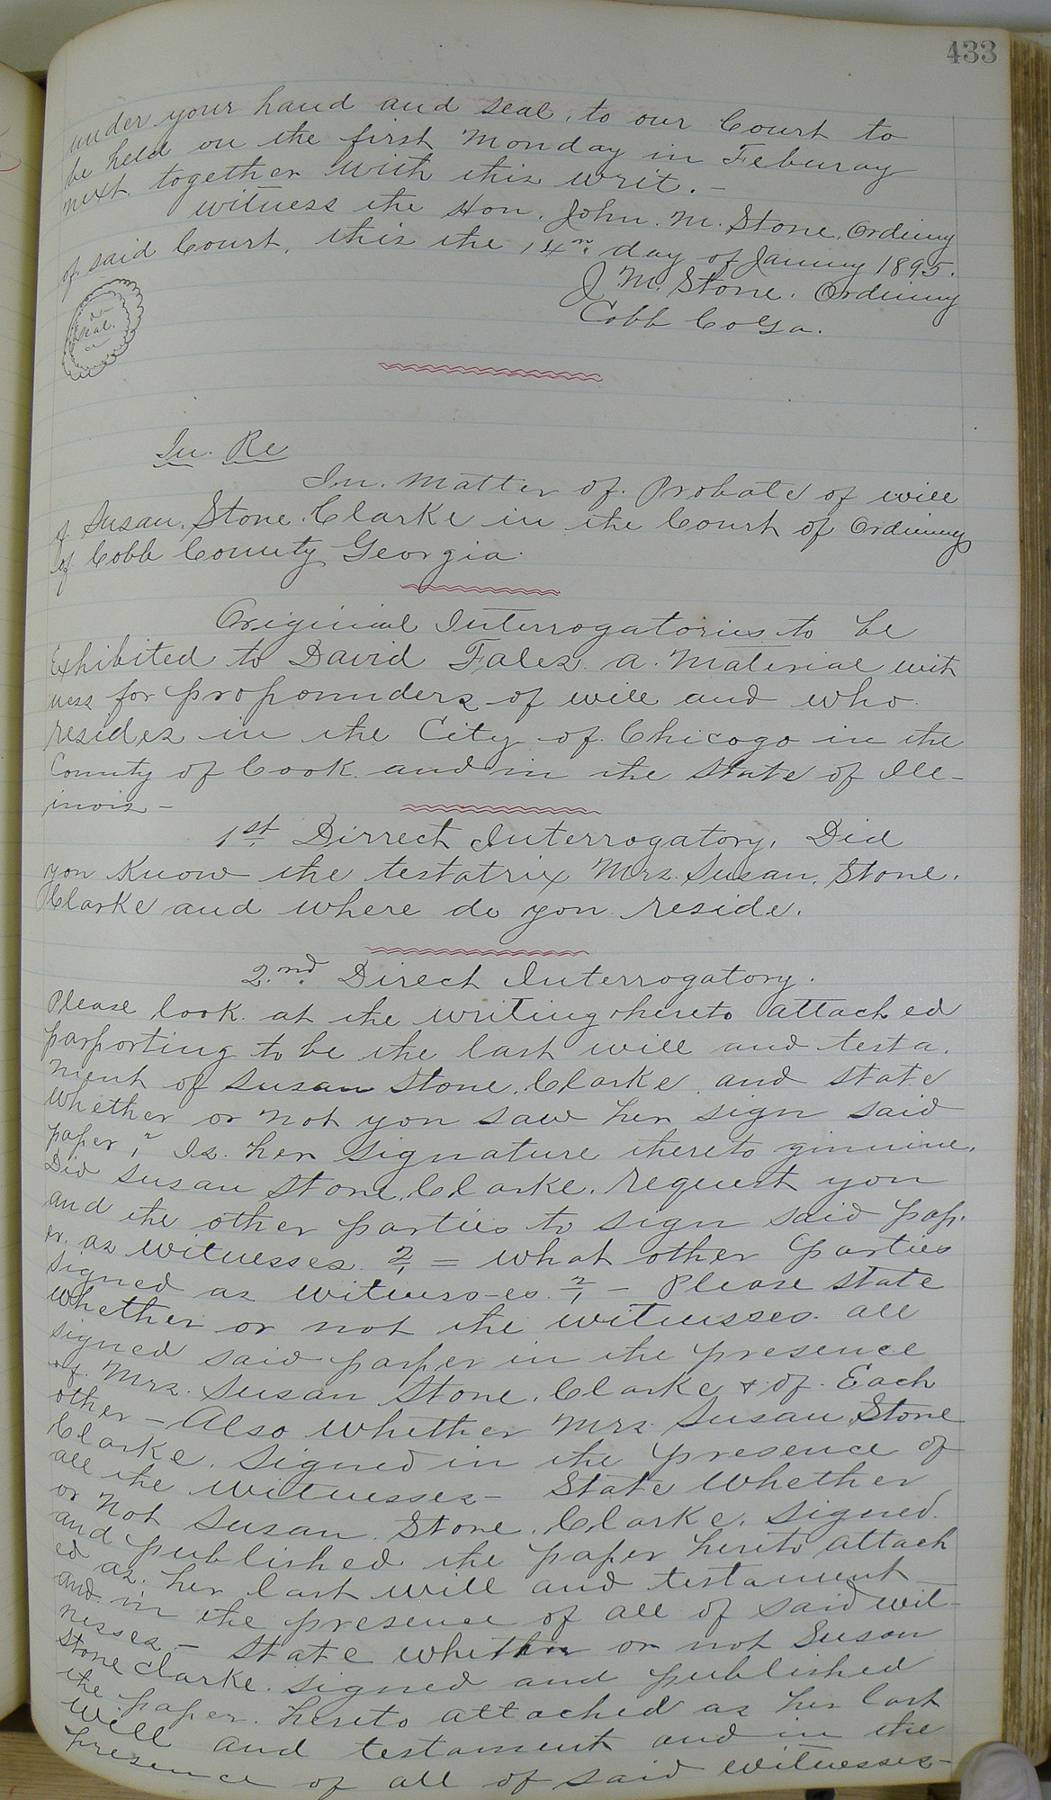 433
under your hand and seal, to our Court to
be held on the first Monday in Feburay
next. together with this writ. -
witness the Hon. John. M. Stone. Ordinry
of said Court, this the 14th day of Janury 1895.
J. M. Stone. Ordinry
Cobb Co Ga.
Seal.
In. Re
In. Matter of. Probate of will
of Susan, Stone. Clarke in the Court of Ordinry
of Cobb County Georgia.
Originial Interrogatories to be
Exhibited to David Fales. a. Material wit
ness for propounders of will and who.
resides in the City of. Chicogo in the
County of Cook. and in the State of Ill-
inois -
1st. Dirrect Interrogatory. Did
you Know the testatrix Mrs. Susan. Stone.
Clarke and where do you reside.
2.nd. Direct Interrogatory.
Please look. at the writing hereto attached
parporting to be the last will and testa.
ment of Susan Stone. Clarke. and state
whether or not you saw her sign said
paper? Is. her signature thereto ginuine.
Did Susan Stone. Clarke. request you
and the other parties to sign said pap.
er. as witnesses. ? = what other parties
signed as witness-es. ? - Please state
whether or not the witnesses. all
signed said paper in the presence
of. Mrs. Susan Stone. Clarke & of. Each
other - Also whether Mrs. Susan Stone
Clarke. signed in the presence of
all the witnesses - State whether
or not Susan. Stone. Clarke. signed.
and published the paper hereto attach
ed as. her last will and testament -
and in the presence of all of said wit-
nesses. - State whether or not Susan
Stone Clarke. signed and published
the paper. hereto attached as her last
will and testament and in the
presence of all of said witnesses -